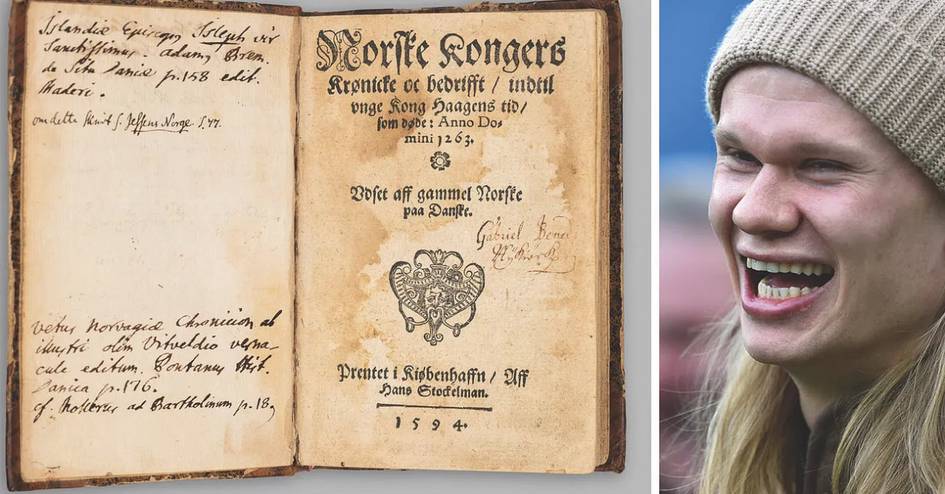 Islandiæ Episcopq Isleph vir
Sanctissimus. adamq Brem.
de Situ Daniæ p.158 edit.
Maderi.
om dette skrift s. Jessens Norge S.77.
vetus Norvagiæ Chronicion ab
illustri olim Vitveldio verna-
cule editum. Pontanus Hist.
Danica p.176.
cf. Mollerus ad Bartholinum p.18,
Norske Kongers
Krønicke oc bedrifft / indtil
vnge Kong Haagens tid /
som døde: Anno Do-
mini 1263.
Vdset aff gammel Norske
paa Danske.
Gabriel
Prentet i Kiøbenhaffn / Aff
Hans Stockelman.
1594.